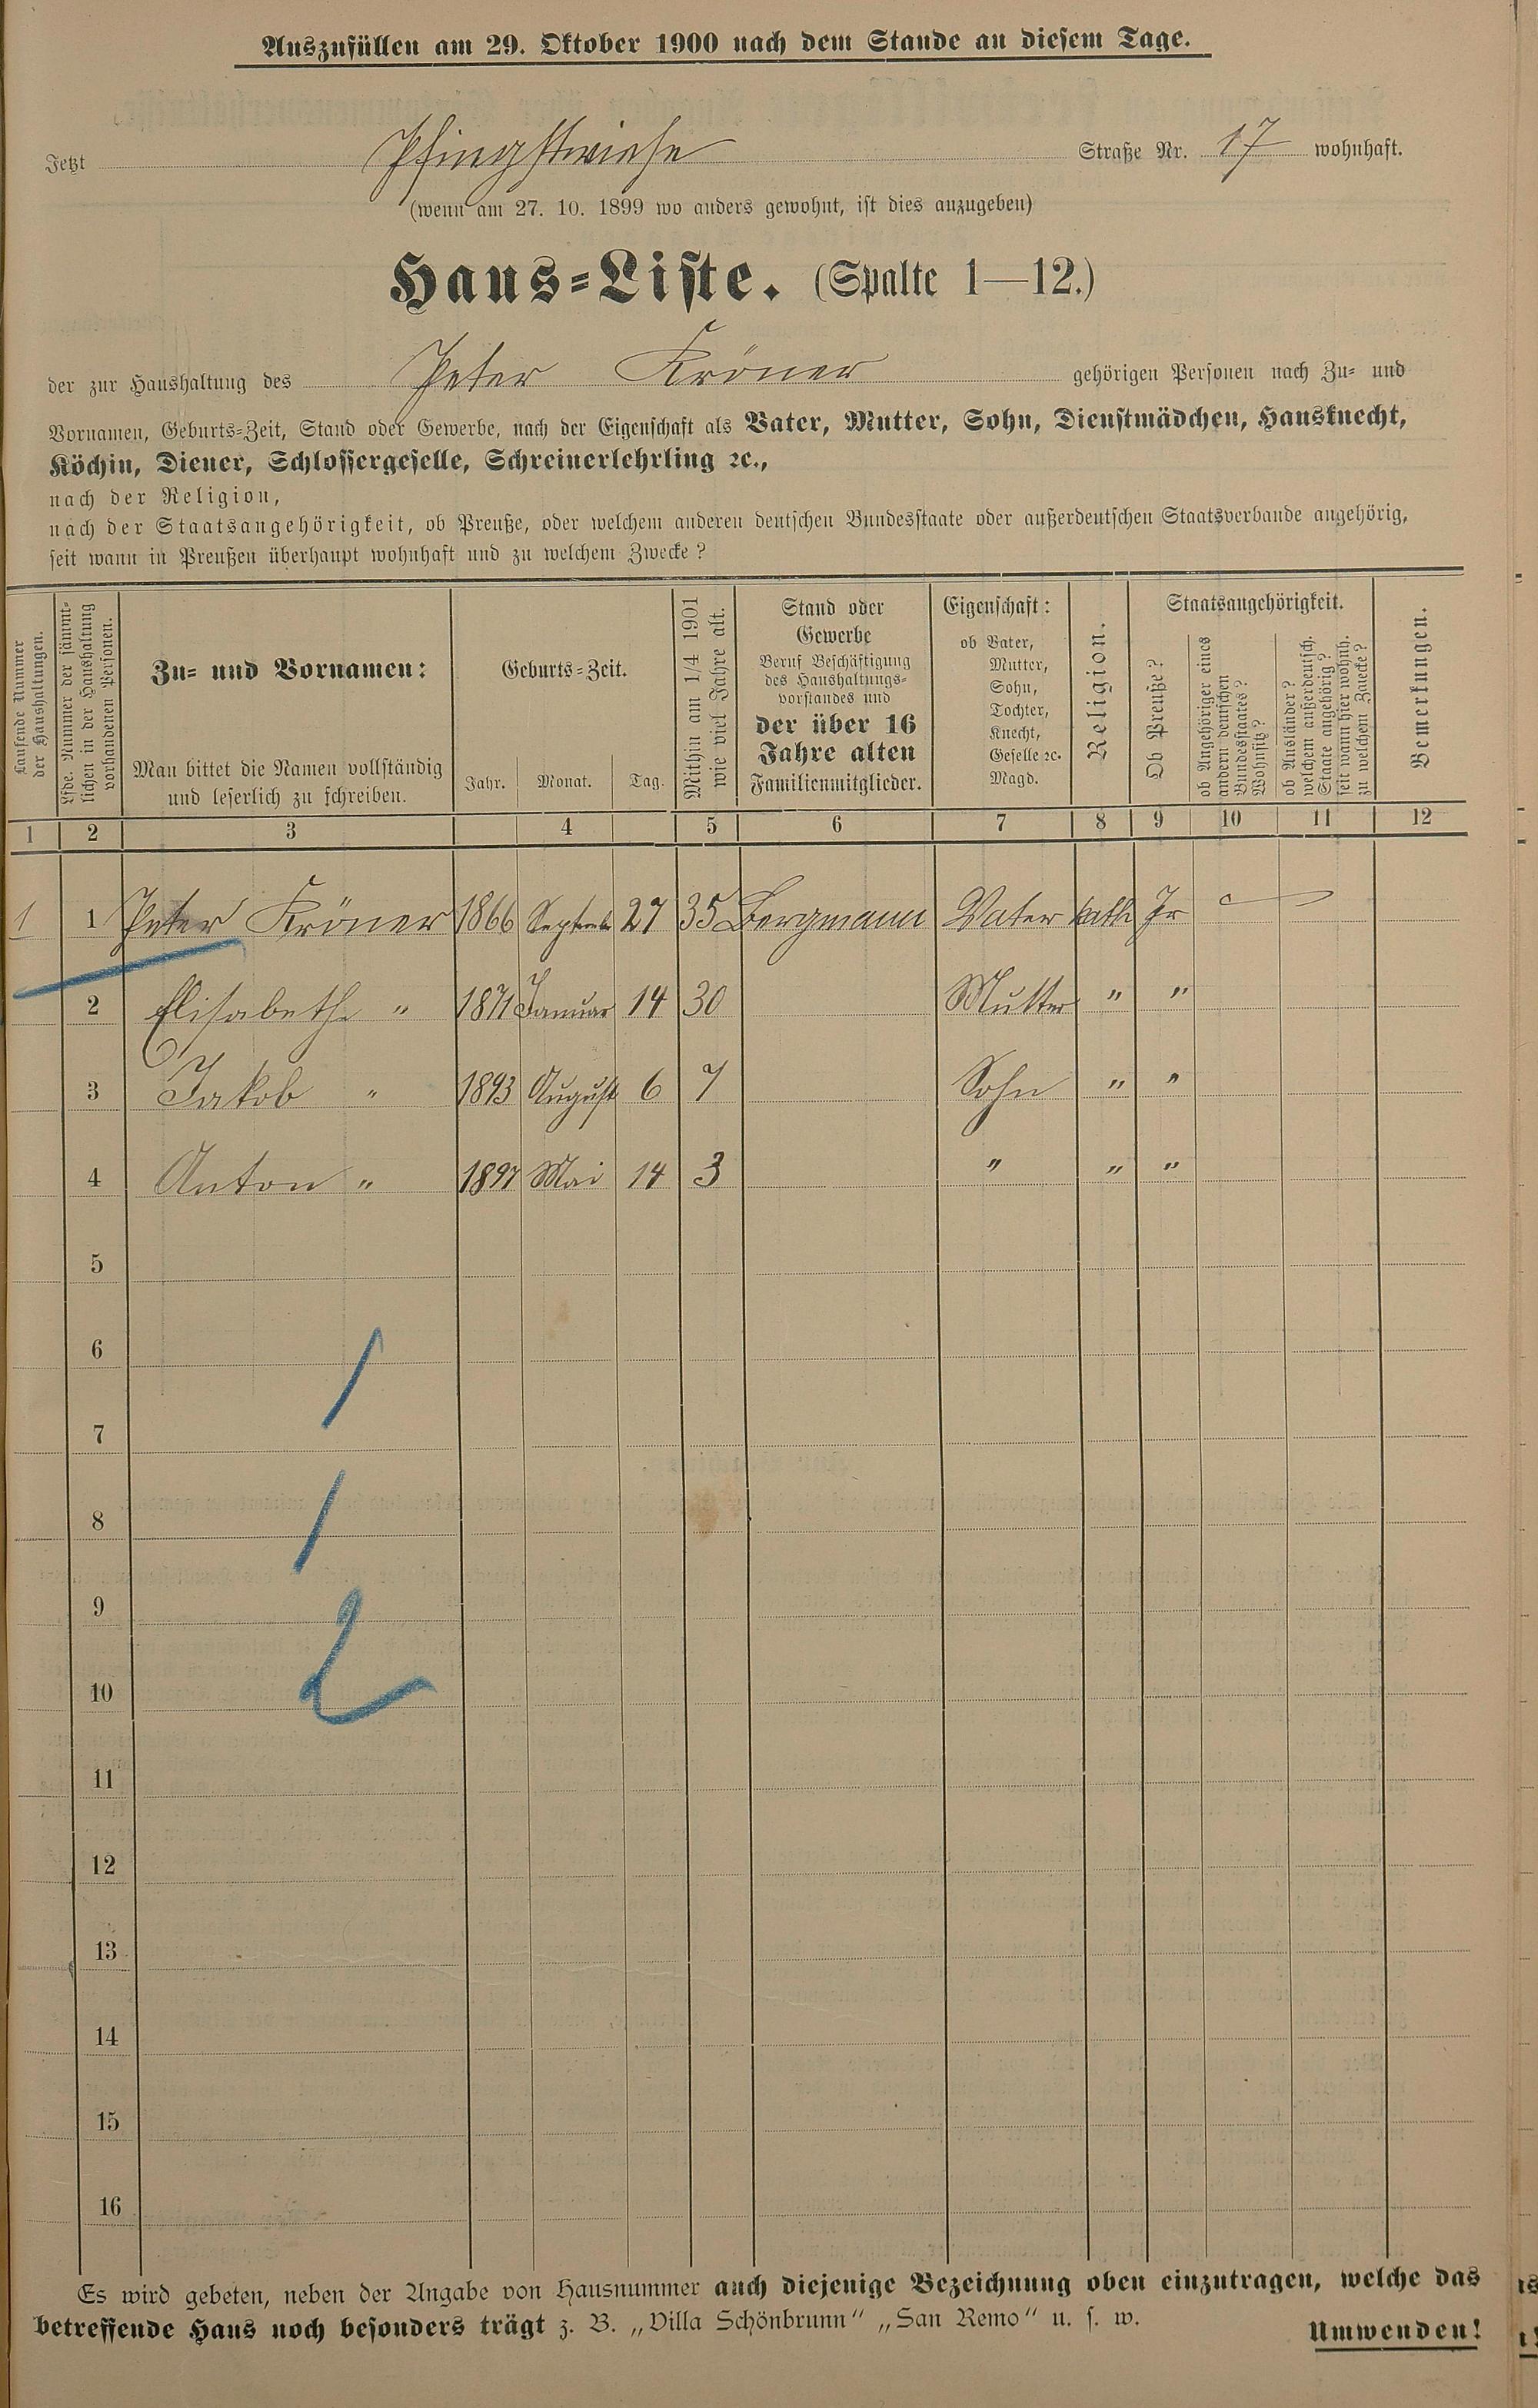 Auszufüllen am 29. Oktober 1900 nach dem Stande an diesem Tage.
Jetzt Pfingstwiese Straße Nr. 17 wohnhaft.
(wenn am 27. 10. 1899 wo anders gewohnt, ist dies anzugeben)
Haus-Liste. (Spalte 1—12.)
der zur Haushaltung des Peter Kröner gehörigen Personen nach Zu- und
Vornamen, Geburts-Zeit, Stand oder Gewerbe, nach der Eigenschaft als Vater, Mutter, Sohn, Dienstmädchen, Hausknecht,
Köchin, Diener, Schlossergeselle, Schreinerlehrling ꝛc.,
nach der Religion,
nach der Staatsangehörigkeit, ob Preuße, oder welchem anderen deutschen Bundesstaate oder außerdeutschen Staatsverbande angehörig,
seit wann in Preußen überhaupt wohnhaft und zu welchem Zwecke?
Laufende Nummer
der Haushaltungen.
Lfde. Nummer der sämmt-
lichen in der Haushaltung
vorhandenen Personen.
Zu- und Vornamen:
Man bittet die Namen vollständig
und leserlich zu schreiben.
Geburts-Zeit.
Jahr. Monat. Tag.
Mithin am 1/4 1901
wie viel Jahre alt.
Stand oder
Gewerbe
Beruf Beschäftigung
des Haushaltungs-
vorstandes und
der über 16
Jahre alten
Familienmitglieder.
Eigenschaft:
ob Vater,
Mutter,
Sohn,
Tochter,
Knecht,
Geselle ꝛc.
Magd.
Religion.
Staatsangehörigkeit.
Ob Preuße?
ob Angehöriger eines
andern deutschen
Bundesstaates?
Wohnsitz?
ob Ausländer?
welchem außerdeutsch.
Staate angehörig?
seit wann hier wohnh.
zu welchem Zwecke?
Bemerkungen.
1 2 3 4 5 6 7 8 9 10 11 12
1 1 Peter Kröner 1866 Septemb 27 35 Bergmann Vater kath Ja
2 Elisabethe " 1871 Januar 14 30 Mutter " "
3 Jakob " 1893 August 6 7 Sohn " "
4 Anton " 1897 Mai 14 3 " " "
5
6
1
7
8
1
9
2
10
11
12
13
14
15
16
Es wird gebeten, neben der Angabe von Hausnummer auch diejenige Bezeichnung oben einzutragen, welche das
betreffende Haus noch besonders trägt z. B. „Villa Schönbrunn" „San Remo" u. s. w.
Umwenden!